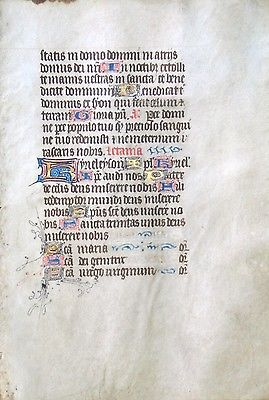 statis in domo domini in atrijs
domus dei nr̄i In noctibus extolli
te manus vestras in sancta et bene
dicite dominum Benedicat te
dominus ex syon qui fecit celum et
terram Gloria pr̄i. A Parce domi
ne parce populo tuo que redemisti sangui
ne tuo ne ineternum ir
ascaris nobis. Letania
Kyrieleyson Xp̄e Kyriel
Xp̄e audi nos Pater
de celis deus miserere nobis Fili
redemptor mundi deus miserere
nobis Sp̄us sc̄e deus miserere
nobis Sancta trinitas unus deus
miserere nobis
Sc̄a maria or
Sc̄a dei genitrix or
Sc̄a virgo virginum or